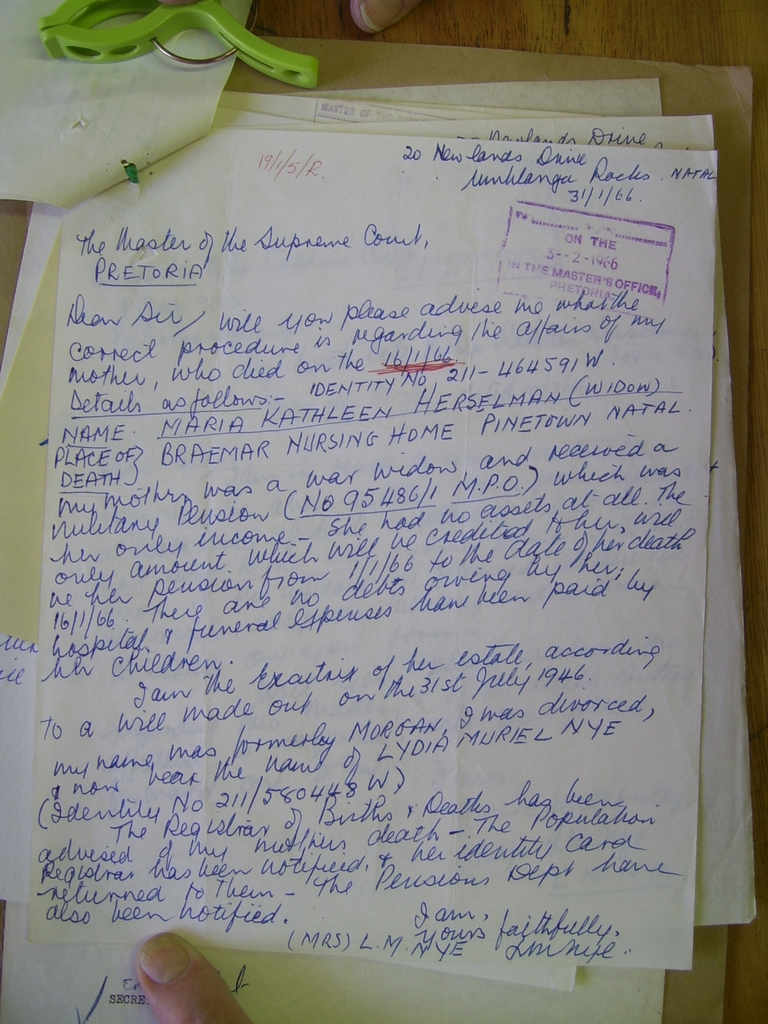 MASTER OF THE
Newlands Drive
19/1/5/R.
20 Newlands Drive
Umhlanga Rocks. NATAL
31/1/66.
The Master of the Supreme Court,
PRETORIA
ON THE
3--2-1966
IN THE MASTER'S OFFICE,
PRETORIA
Dear Sir, Will you please advise me what the
correct procedure is regarding the affairs of my
mother, who died on the 16/1/66.
Details as follows:- IDENTITY No 211-464591W.
NAME. MARIA KATHLEEN HERSELMAN (WIDOW)
PLACE OF DEATH} BRAEMAR NURSING HOME PINETOWN NATAL.
My mother was a war widow and received a
Military Pension (No 95486/1 M.P.O.) which was
her only income - She had no assets at all. The
only amount which will be credited to her, will
be her pension from 1/1/66 to the date of her death
16/1/66. There are no debts owing by her;
hospital & funeral expenses have been paid by
her children.
I am the Executrix of her estate, according
to a will made out on the 31st July 1946.
My name was formerly MORGAN, I was divorced,
& now bear the name of LYDIA MURIEL NYE
(Identity No 211/580448W)
The Registrar of Births & Deaths has been
advised of my mother's death - The Population
Registrar has been notified, & her identity card
returned to them - The Pensions Dept have
also been notified.
I am,
Yours faithfully,
(MRS) L.M. NYE LMNye.
SECRE